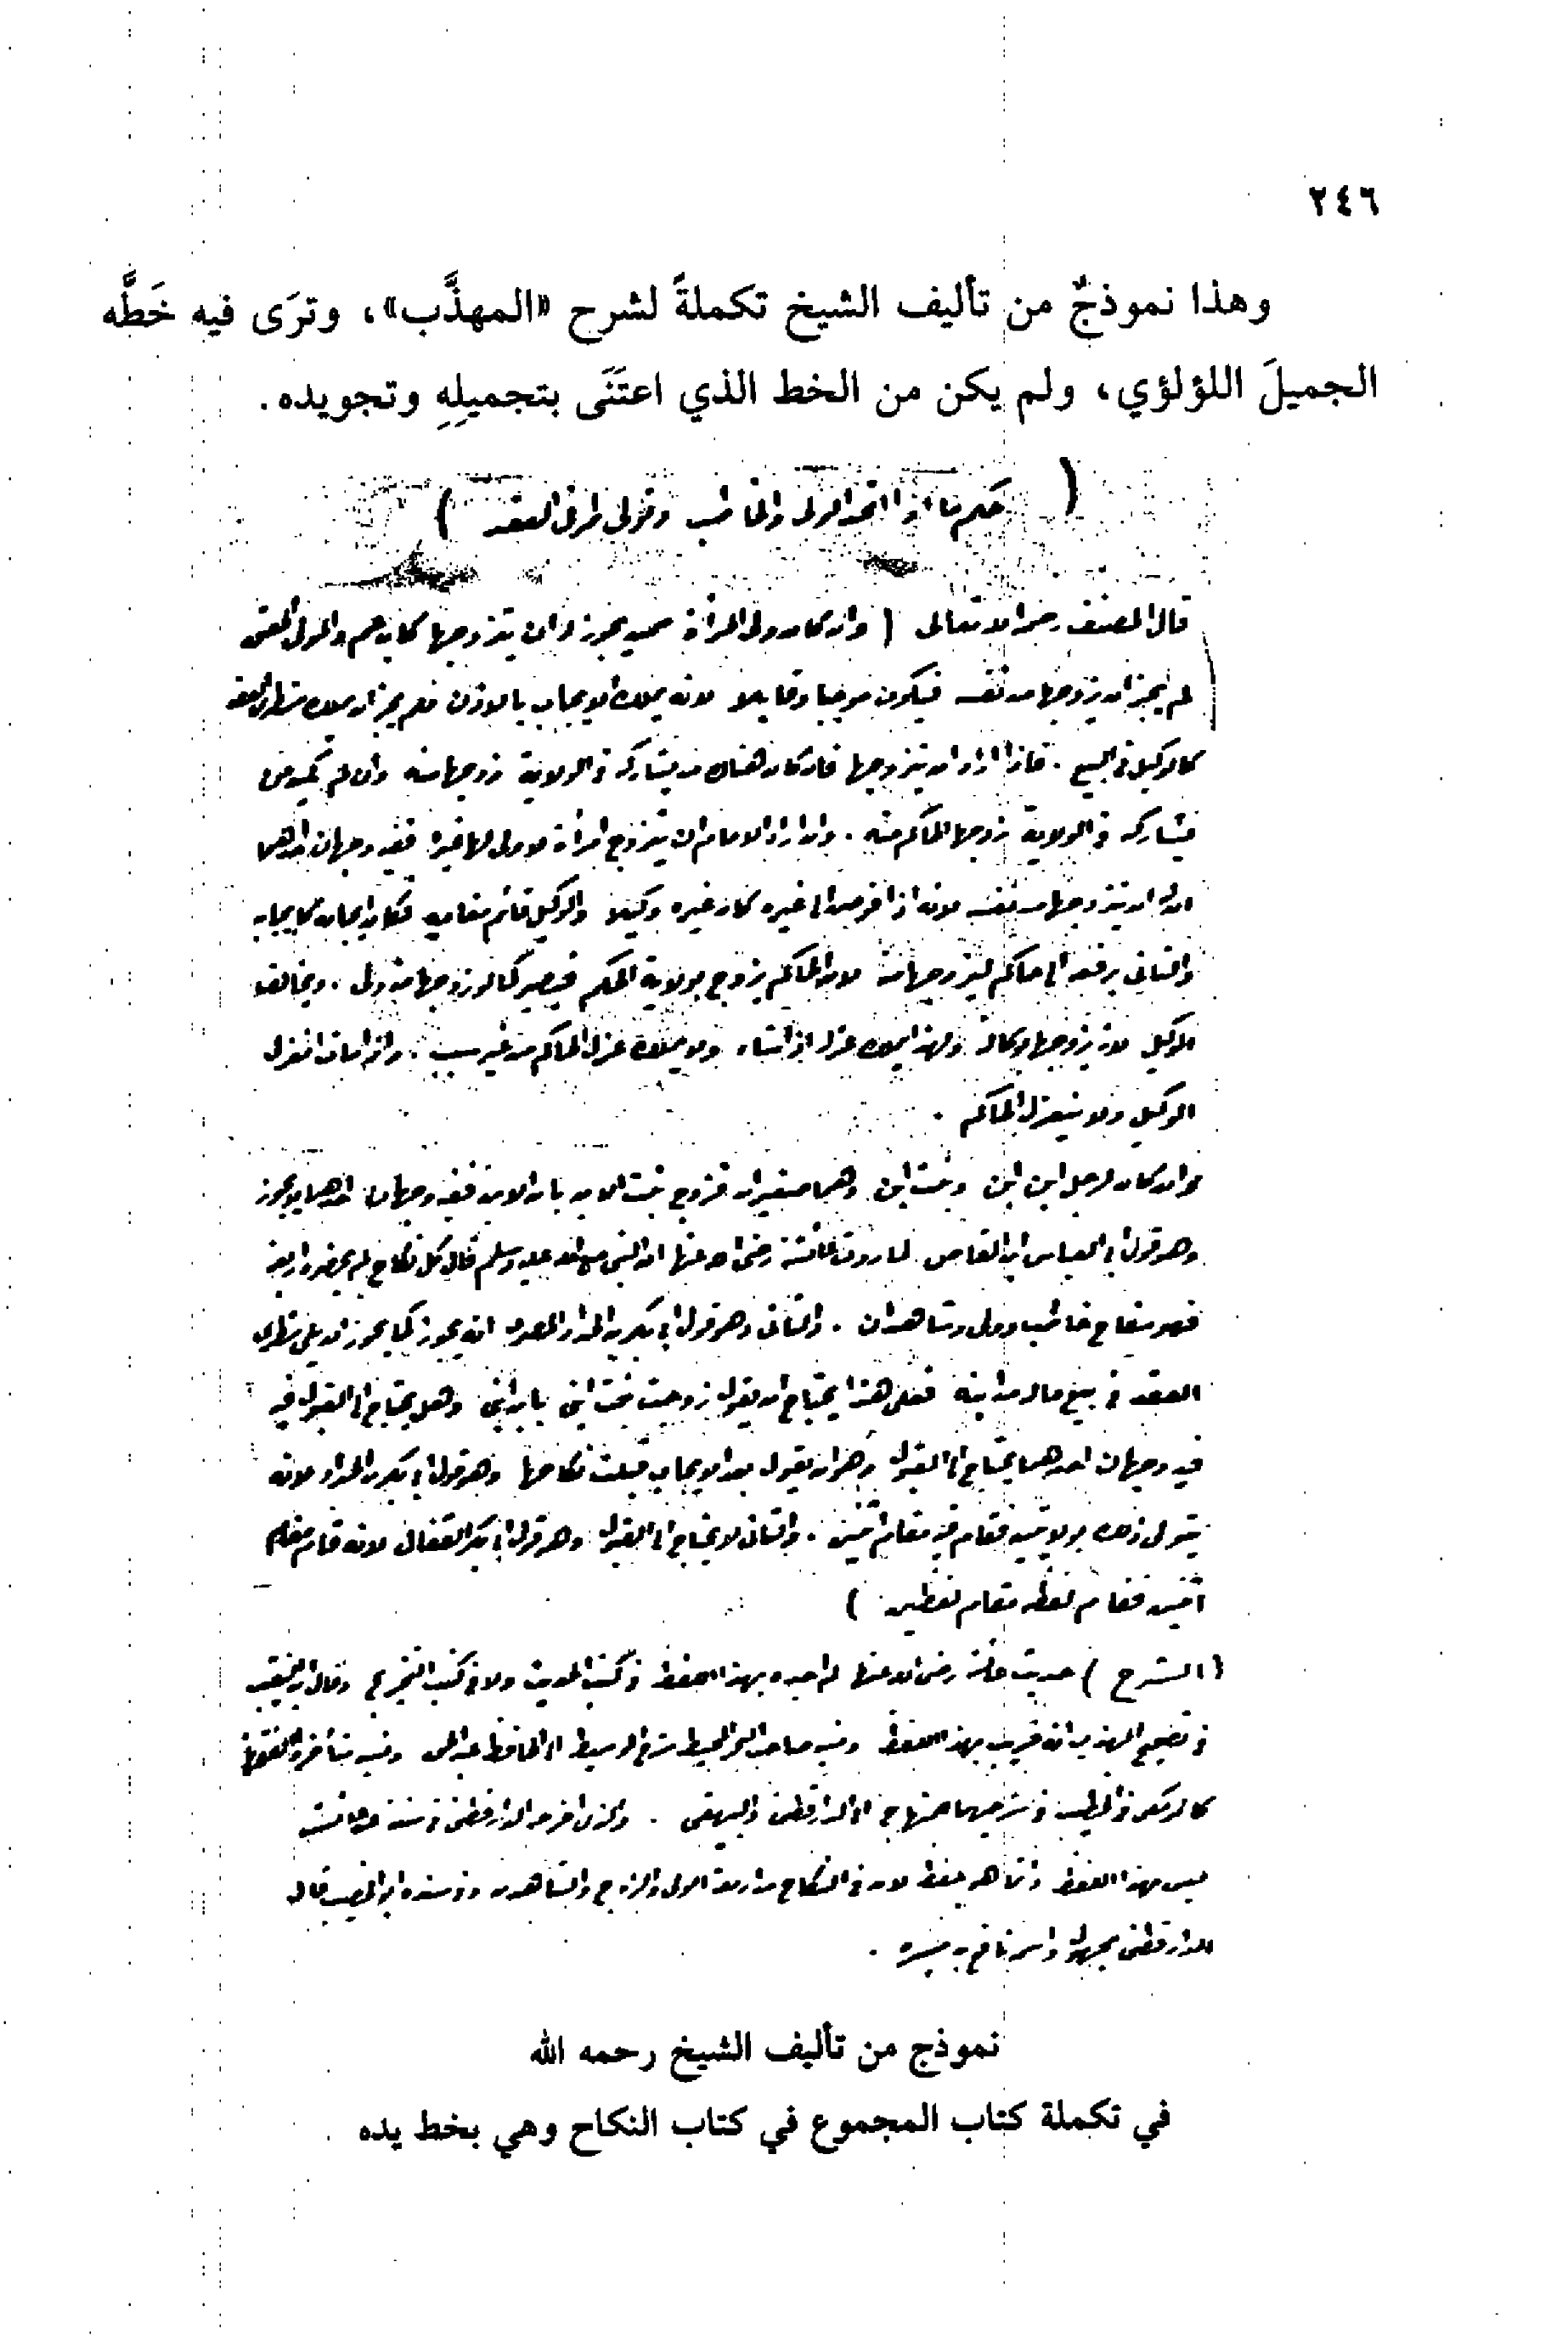 ٢٤٦
وهذا نموذجٌ من تأليف الشيخ تكملةً لشرح «المهذَّب»، وترَى فيه خَطَّه
الجميلَ اللؤلؤي، ولم يكن من الخط الذي اعتَنَى بتجميلِهِ وتجويده.
( حكم ما إذا اتحد الولى والخاطب وتولى طرفى العقد )
قال المصنف رحمه الله تعالى ( وان كان ولى المرأة ممن يجوز له ان يتزوجها كابن عم والمولى المعتق
لم يجز ان يزوجها من نفسه فيكون موجبا وقابلا لانه يملك الايجاب بالاذن فلم يجز ان يملك شطرى العقد
كالوكيل فى البيع . فاذا اراد ان يتزوجها فان كان هناك من يشاركه فى الولاية زوجها منه وان لم يكن من
يشاركه فى الولاية زوجها الحاكم منه . وان اراد الامام ان يتزوج امرأة لا ولى لها غيره ففيه وجهان احدهما
ان له ان يتزوجها من نفسه لانه اذا فوض الى غيره كان غيره وكيلا والوكيل قائم مقامه فكان ايجابه كايجابه
والثانى يرفعه الى حاكم ليزوجها منه لان الحاكم يزوج بولاية الحكم فيصير كما لو زوجها منه ولى . ويخالف
الوكيل لانه يزوجها بوكالته ولهذا يملك عزله اذا شاء ولا يملك عزل الحاكم من غير سبب . واذا مات انعزل
الوكيل ولا ينعزل الحاكم .
وان كان لرجل ابن ابن وبنت ابن وهما صغيران فزوج بنت الابن بابن الابن ففيه وجهان احدهما لا يجوز
وهو قول ابى العباس ابن القاص لما روت عائشة رضى الله عنها ان النبى صلى الله عليه وسلم قال كل نكاح لم يحضره اربعة
فهو سفاح خاطب وولى وشاهدان . والثانى وهو قول ابى بكر بن الحداد المصرى انه يجوز كما يجوز ان يلى شطرى
العقد فى بيع ماله من ابنه فعلى هذا يحتاج ان يقول زوجت بنت ابنى بابن ابنى وهل يحتاج الى القبول فيه
فيه وجهان احدهما يحتاج الى القبول وهو ان يقول بعد الايجاب قبلت نكاحها وهو قول ابى بكر بن الحداد لانه
يتولى ذلك بولايتين فقام فيه مقام اثنين . والثانى لا يحتاج الى القبول وهو قول ابى بكر القفال لانه قام مقام
اثنين فقام لفظه مقام لفظين )
( الشرح ) حديث عائشة رضى الله عنها لم اجده بهذا اللفظ فى كتب الحديث ولا فى كتب التخريج وقال
فى تصحيح المهذب انه قريب بهذا اللفظ ونسبه صاحب البحر المحيط شرح الوسيط الى الحافظ عبد الحق ونسبه متأخرو الفقهاء
كالرملى والخطيب فى شرحيهما للمنهاج الى الدارقطنى والبيهقى . والذى اخرجه الدارقطنى فى سننه عن عائشة
ليس بهذا اللفظ وانما هو بلفظ لا بد فى النكاح من اربعة الولى والزوج والشاهدين وفى سنده ابو الخصيب قال
الدارقطنى مجهول واسمه نافع بن ميسرة .
نموذج من تأليف الشيخ رحمه الله
في تكملة كتاب المجموع في كتاب النكاح وهي بخط يده